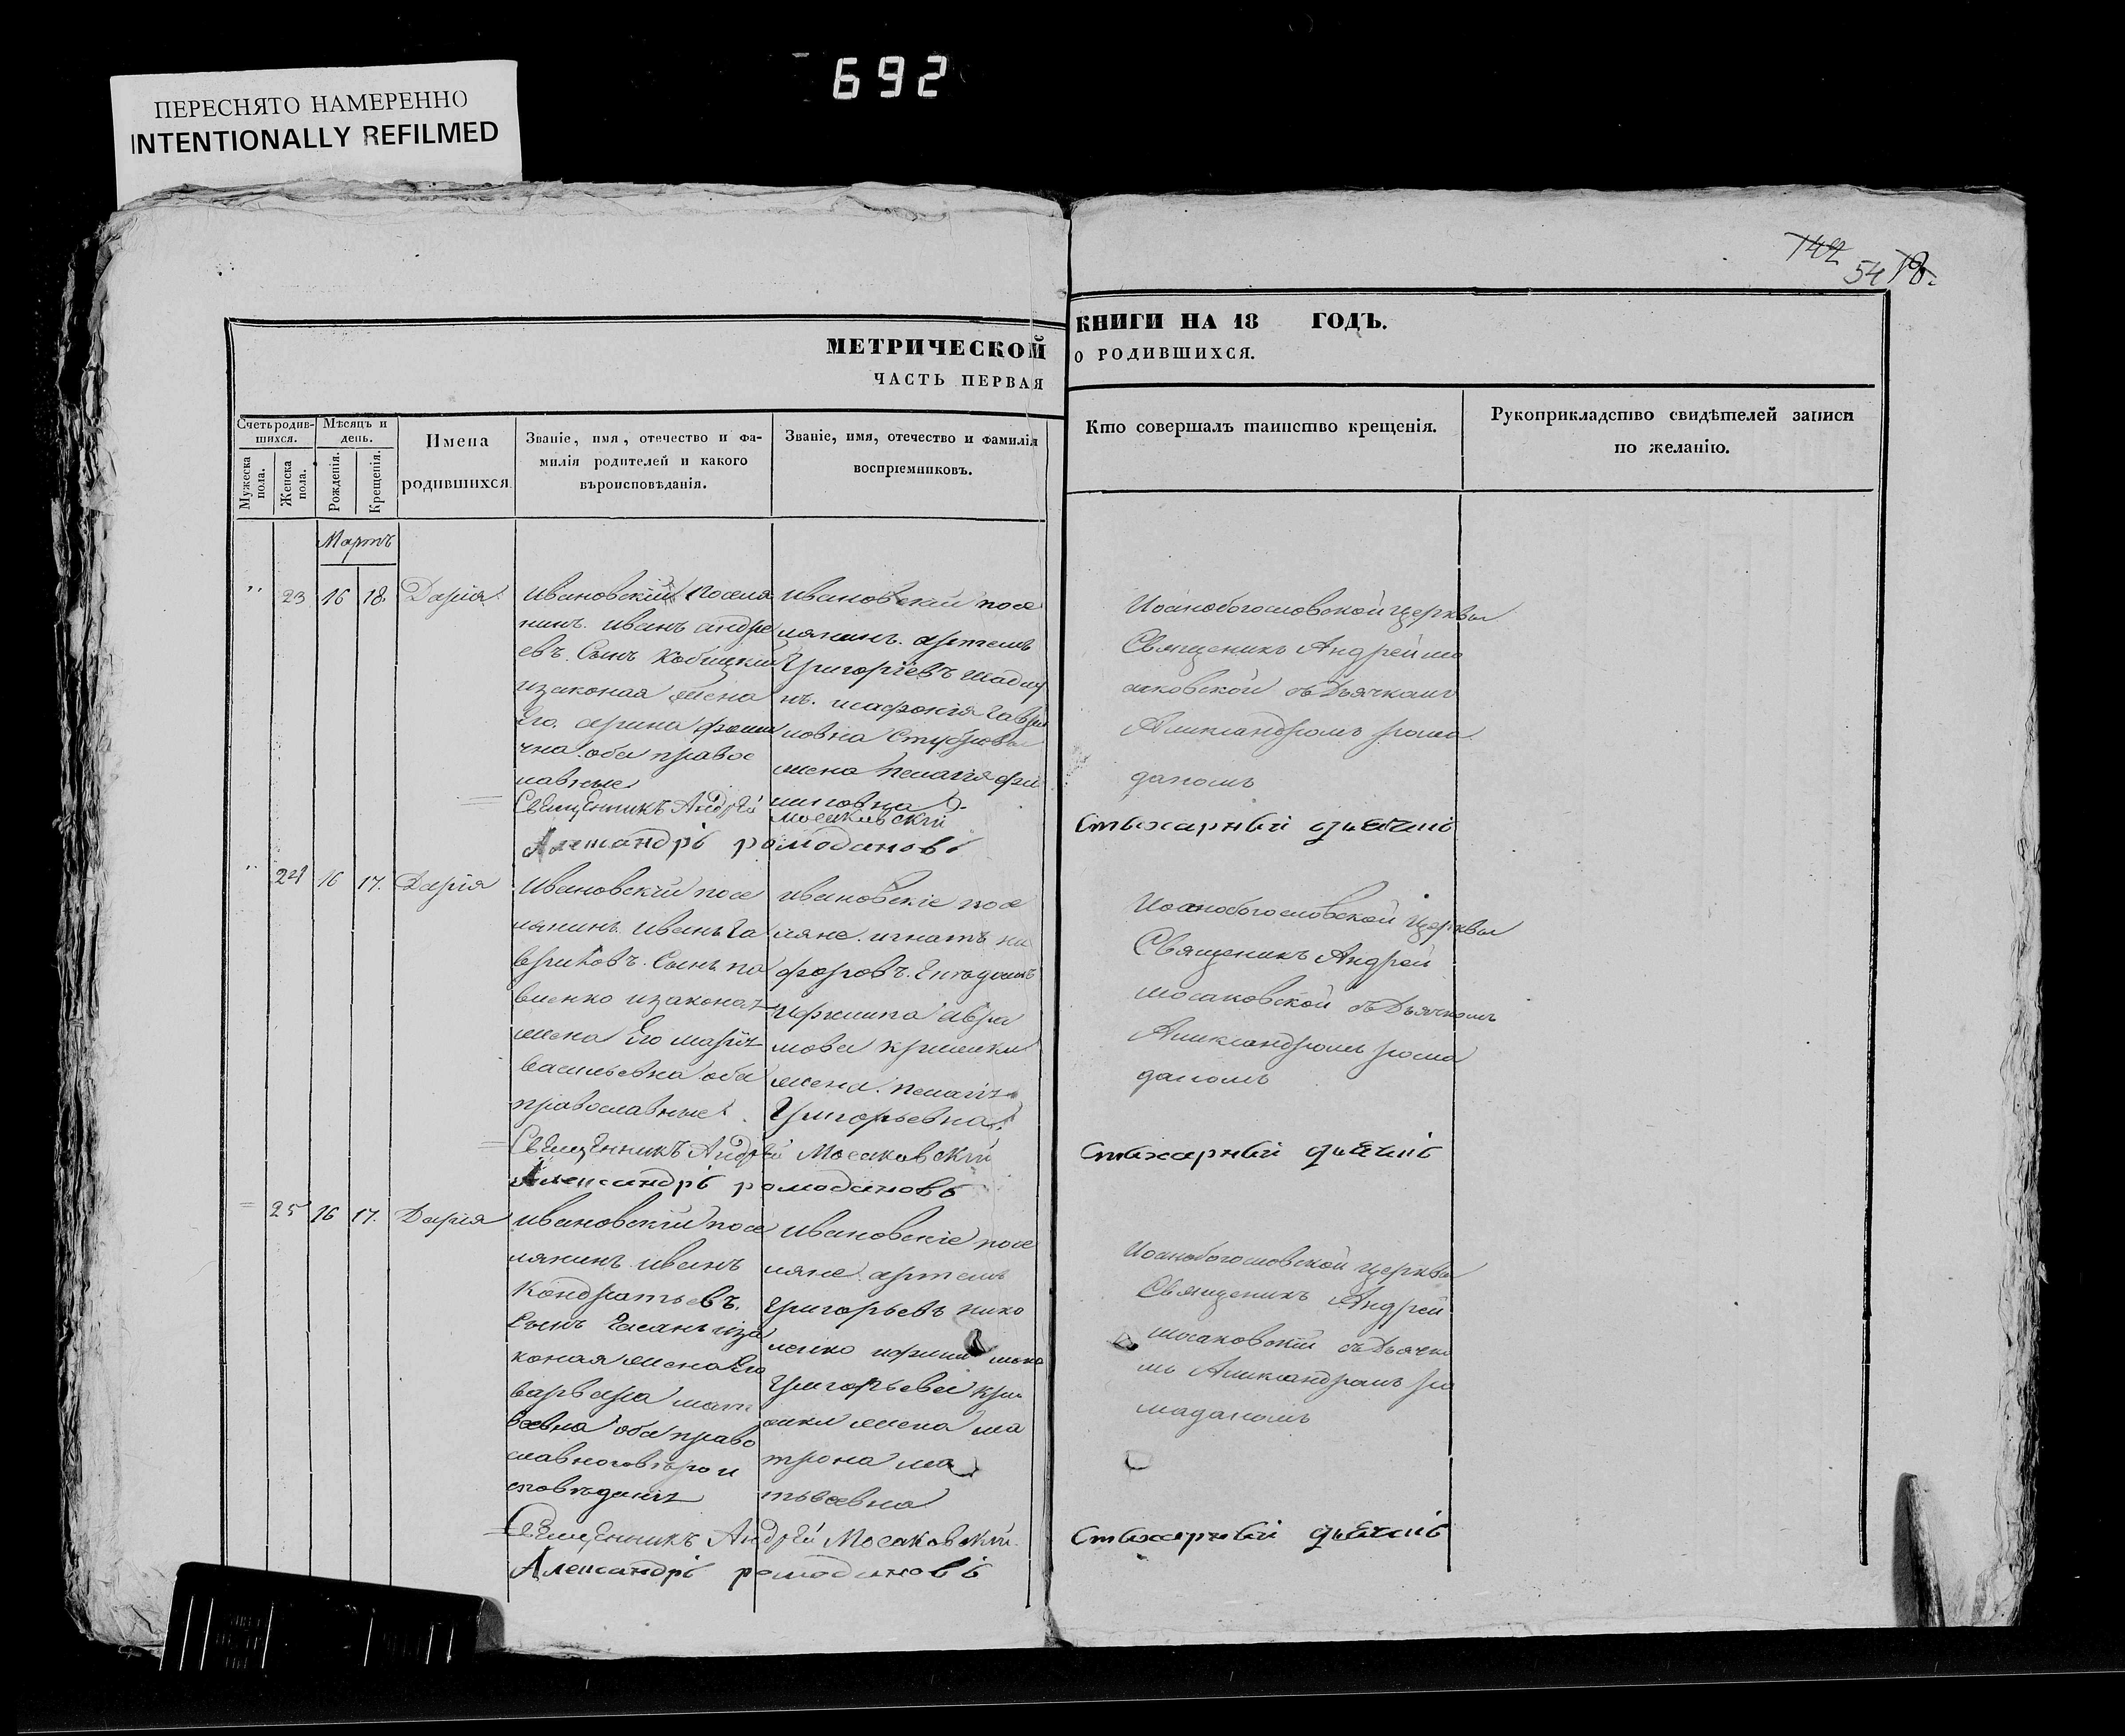 692
ПЕРЕСНЯТО НАМЕРЕННО
INTENTIONALLY REFILMED
142
54
МЕТРИЧЕСКОЙ
ЧАСТЬ ПЕРВАЯ
КНИГИ НА 18 ГОДЪ.
О РОДИВШИХСЯ.
Счетъ родив-
шихся.
Мужеска
пола.
Женска
пола.
Мѣсяцъ и
день.
Рожденія.
Крещенія.
Имена
родившихся
Званіе, имя, отечество и фа-
милія родителей и какого
вѣроисповѣданія.
Званіе, имя, отечество и фамилія
воспріемниковъ.
Кто совершалъ таинство крещенія.
Рукоприкладство свидѣтелей записи
по желанію.
Мартъ
" 23 16 18. Дарія
Ивановскій Поселя
нинъ. иванъ андре
евъ. Сынъ
изаконая жена
Его. арина
чна оба правос
лавные
Ивановскій посе
лянинъ. артемъ
Григоріевъ
ловна
жена пелагія фи
липовна
Иоанобогословской церквы
Священикъ Андрей мо
саковской съ Дьячкомъ
Александромъ рома
даномъ
Священникъ Андрей Мосаковскій
Александръ ромодановъ
Стихарный дьячикъ
" 24 16 17. Дарія
Ивановскій посе
лянинъ. иванъ Га
вриловъ. Сынъ па
вленко изаконая
жена Его марія
васильевна оба
православные.
ивановскіе посе
ляне. игнатъ
жена. пелагія
Григорьевна.
Иоанобогословской Церквы
Священикъ Андрей
мосаковской съ Дьячкомъ
Александромъ рома
даномъ
Священникъ Андрей Мосаковскій
Александръ ромодановъ
Стихарный дьячикъ
= 25 16 17. Дарія
ивановскій посе
лянинъ. иванъ
Кондратьевъ.
Сынъ иза
коная жена Его
варвара мат
веевна оба право
славного вѣрои
сповѣданія
Ивановскіе посе
ляне. артемъ
Григорьевъ нико
ленко
Григорьева
жена ма
трона ма
твеевна
Иоанобогословской церквы
Священикъ Андрей
мосаковскій съ Дьячко
мъ Александромъ ро
маданомъ
Священникъ Андрей Мосаковскій
Александръ ромодановъ
Стихарный дьячикъ